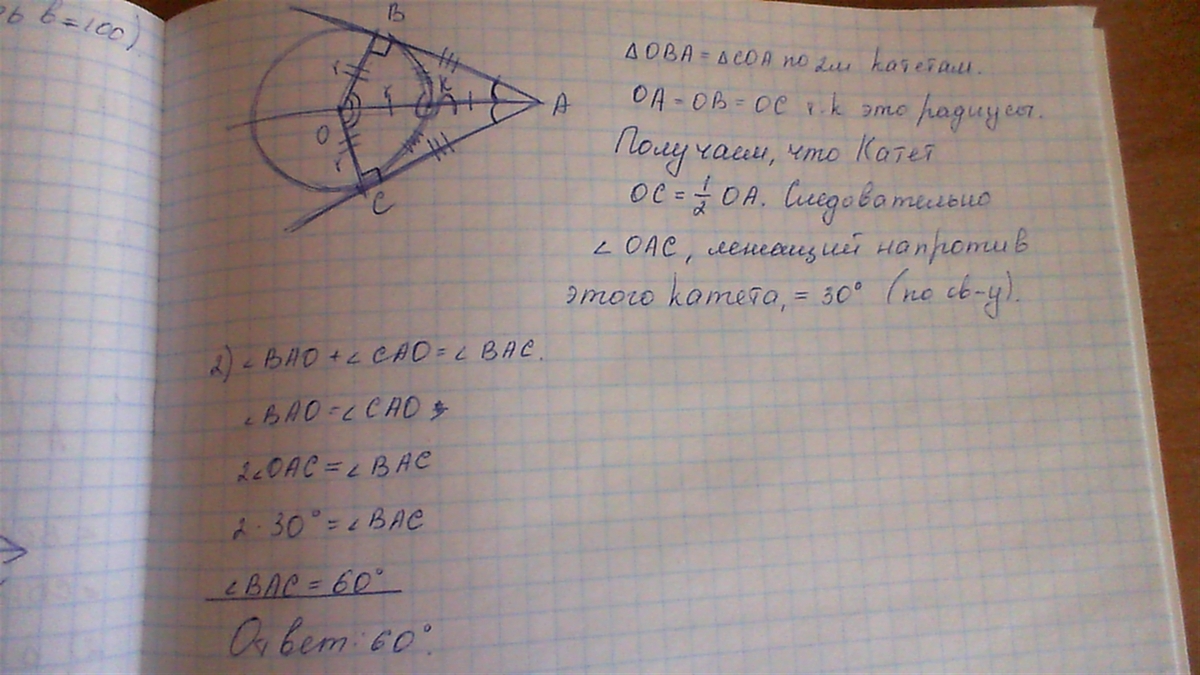 ь b=100)
B
r
r
K
A
O
r
C
△OBA=△COA по 2м катетам.
OA=OB=OC т.к это радиусы.
Получаем, что Катет
OC=1/2 OA. Следовательно
∠OAC, лежащий напротив
этого катета, = 30° (по св-у).
2) ∠BAO+∠CAO=∠BAC.
∠BAO=∠CAO
2∠OAC=∠BAC
2·30°=∠BAC
∠BAC=60°
Ответ: 60°.